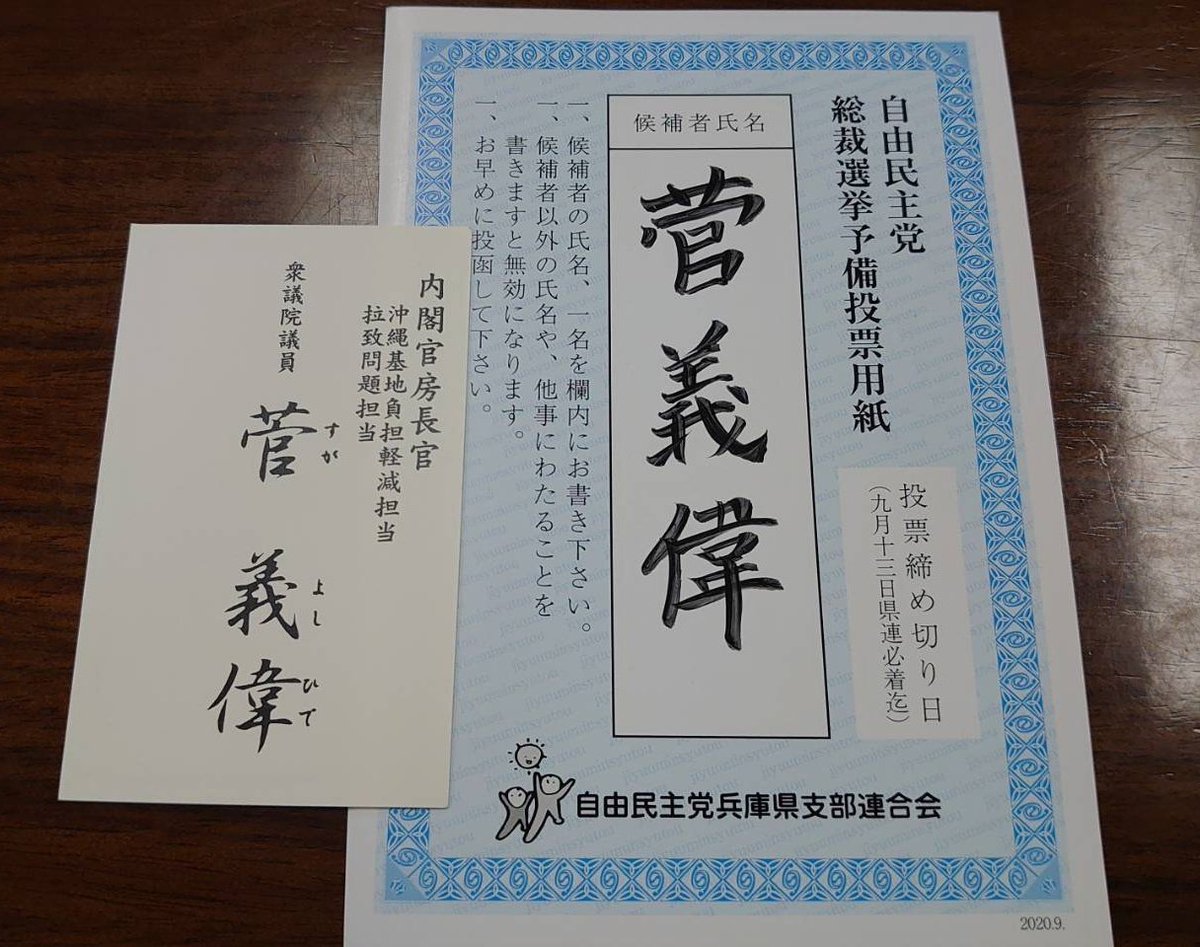 自由民主党
総裁選挙予備投票用紙
投票締め切り日
（九月十三日県連必着迄）
候補者氏名
菅義偉
一、候補者の氏名、一名を欄内にお書き下さい。
一、候補者以外の氏名や、他事にわたることを
書きますと無効になります。
一、お早めに投函して下さい。
自由民主党兵庫県支部連合会
2020.9.
内閣官房長官
沖縄基地負担軽減担当
拉致問題担当
衆議院議員
菅義偉
すが よし ひで
jiyuuminsyutou